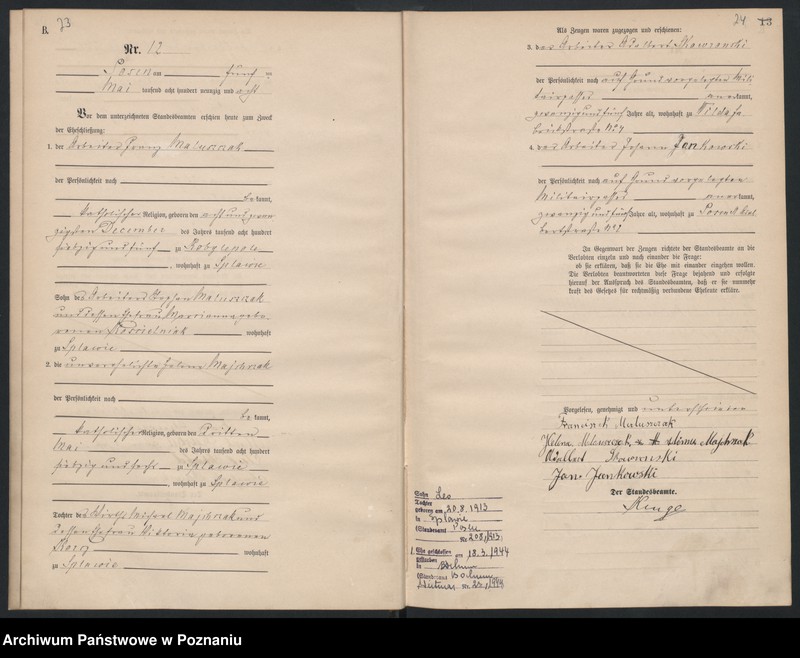 B. 23
Nr. 12
Posen am fünf ten
Mai tausend acht hundert neunzig und acht
Vor dem unterzeichneten Standesbeamten erschien heute zum Zweck
der Eheschließung:
1. der Arbeiter Franz Matuszak
der Persönlichkeit nach
be kannt,
katholischer Religion, geboren den acht und zwan
zigsten December des Jahres tausend acht hundert
siebzig und fünf zu Kobylepole
, wohnhaft zu Splawie
Sohn des Arbeiters Matuszak
und dessen Ehefrau Marianna gebo
renen wohnhaft
zu Splawie
2. die unverehelichte Helena Majchrzak
der Persönlichkeit nach
be kannt,
katholischer Religion, geboren den dritten
Mai des Jahres tausend acht hundert
siebzig und sechs zu Splawie
, wohnhaft zu Splawie
Tochter des Wirths Michael Majchrzak und
dessen Ehefrau Viktoria geborenen
wohnhaft
zu Splawie
24 13
Als Zeugen waren zugezogen und erschienen:
3. der Arbeiter Adalbert Skowronski
der Persönlichkeit nach auf Grund vorgelegten Mili
tairpasses aner kannt,
zwanzig und fünf Jahre alt, wohnhaft zu Wilda
4. der Arbeiter Johann Jankowski
der Persönlichkeit nach auf Grund vorgelegten
Militairpasses aner kannt,
zwanzig und fünf Jahre alt, wohnhaft zu Posen
In Gegenwart der Zeugen richtete der Standesbeamte an die
Verlobten einzeln und nach einander die Frage:
ob sie erklären, daß sie die Ehe mit einander eingehen wollen.
Die Verlobten beantworteten diese Frage bejahend und erfolgte
hierauf der Ausspruch des Standesbeamten, daß er sie nunmehr
kraft des Gesetzes für rechtmäßig verbundene Eheleute erkläre.
Vorgelesen, genehmigt und unterschrieben
Franciszek Matuszak
Helena Matuszak Majchrzak
Adalbert Skowronski
Jan Jankowski
Der Standesbeamte.
Sohn Leo
Tochter
geboren am 20.8.1913
in Splawie
(Standesamt Posen
Nr 208/1913.
1. Ehe geschlossen am 18.3.1944
in Bochum
(Standesamt Bochum
Nr.
Archiwum Państwowe w Poznaniu